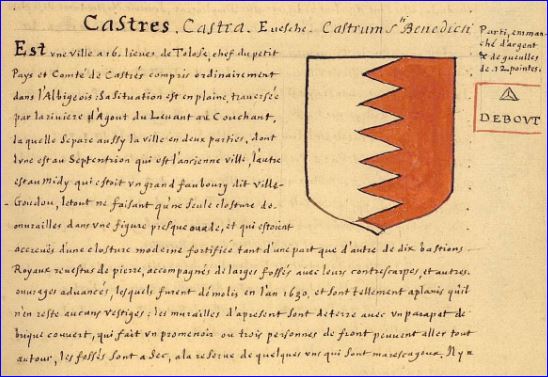 Castres. Castra. Evesche. Castrum Sti Benedicti
Parti, emman-
ché d'argent
& de gueulles
de 12 pointes.
DEBOUT
Est vne ville a 16. lieues de Tolose, chef du petit
Pays et Comté de Castres compris ordinairement
dans l'Albigeois: Sa Situation est en plaine, trauersée
par la riuiere d'Agout du Leuant au Couchant,
laquelle Separe aussy la ville en deux parties, dont
l'vne est au Septentrion qui est l'ancienne ville, l'autre
est au Midy qui estoit vn grand fauboug dit Ville-
Goudou, le tout ne faisant qu'vne Seule closture de
murailles dans vne figure presque ouade, et qui estoient
accreues d'une closture moderne fortifiée tant d'une part que d'autre de dix bastions
Royaux reuestus de pierre, accompagnés de larges fossés auec leurs contrescarpes, et autres
ouurages aduancés, lesquels furent démolis en l'an 1630, et sont tellement aplanis qu'il
n'en reste aucuns vestiges: les murailles d'apresent sont de terre auec vn parapet de
brique couuert, qui fait vn promenoir ou trois personnes de front peuuent aller tout
autour, les fossés sont a Sec, a la reserue de quelques vns qui sont marescageux. Il y a